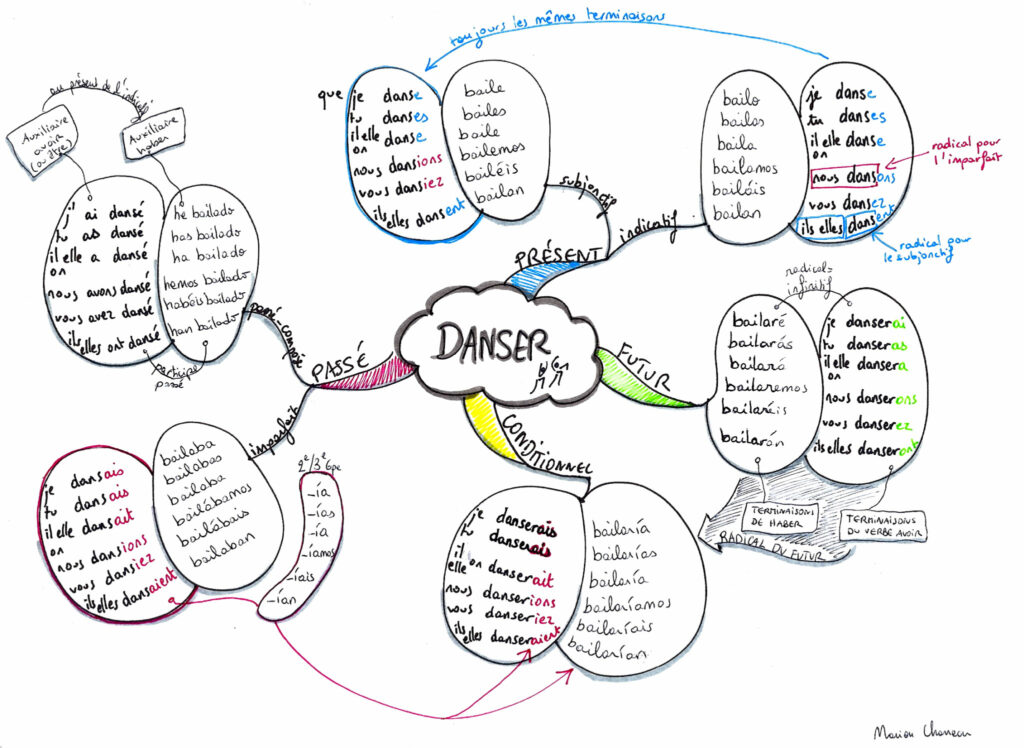 DANSER
PRÉSENT
toujours les mêmes terminaisons
subjonctif
que je danse
tu danses
il elle danse
on
nous dansions
vous dansiez
ils elles dansent
baile
bailes
baile
bailemos
bailéis
bailan
indicatif
bailo
bailas
baila
bailamos
bailáis
bailan
je danse
tu danses
il elle danse
on
nous dansons
vous dansez
ils elles dansent
radical pour
l'imparfait
radical pour
le subjonctif
FUTUR
radical =
infinitif
bailaré
bailarás
bailará
bailaremos
bailaréis
bailarán
je danserai
tu danseras
il elle dansera
on
nous danserons
vous danserez
ils elles danseront
TERMINAISONS
DE HABER
TERMINAISONS
DU VERBE AVOIR
RADICAL DU FUTUR
CONDITIONNEL
je danserais
tu danserais
il
elle on danserait
nous danserions
vous danseriez
ils elles danseraient
bailaría
bailarías
bailaría
bailaríamos
bailaríais
bailarían
PASSÉ
imparfait
je dansais
tu dansais
il elle dansait
on
nous dansions
vous dansiez
ils elles dansaient
bailaba
bailabas
bailaba
bailábamos
bailabais
bailaban
2e/3e Gpe
-ía
-ías
-ía
-íamos
-íais
-ían
passé-composé
au présent de l'indicatif
Auxiliaire
avoir
(ou être)
Auxiliaire
haber
j'ai dansé
tu as dansé
il elle a dansé
on
nous avons dansé
vous avez dansé
ils elles ont dansé
he bailado
has bailado
ha bailado
hemos bailado
habéis bailado
han bailado
participe
passé